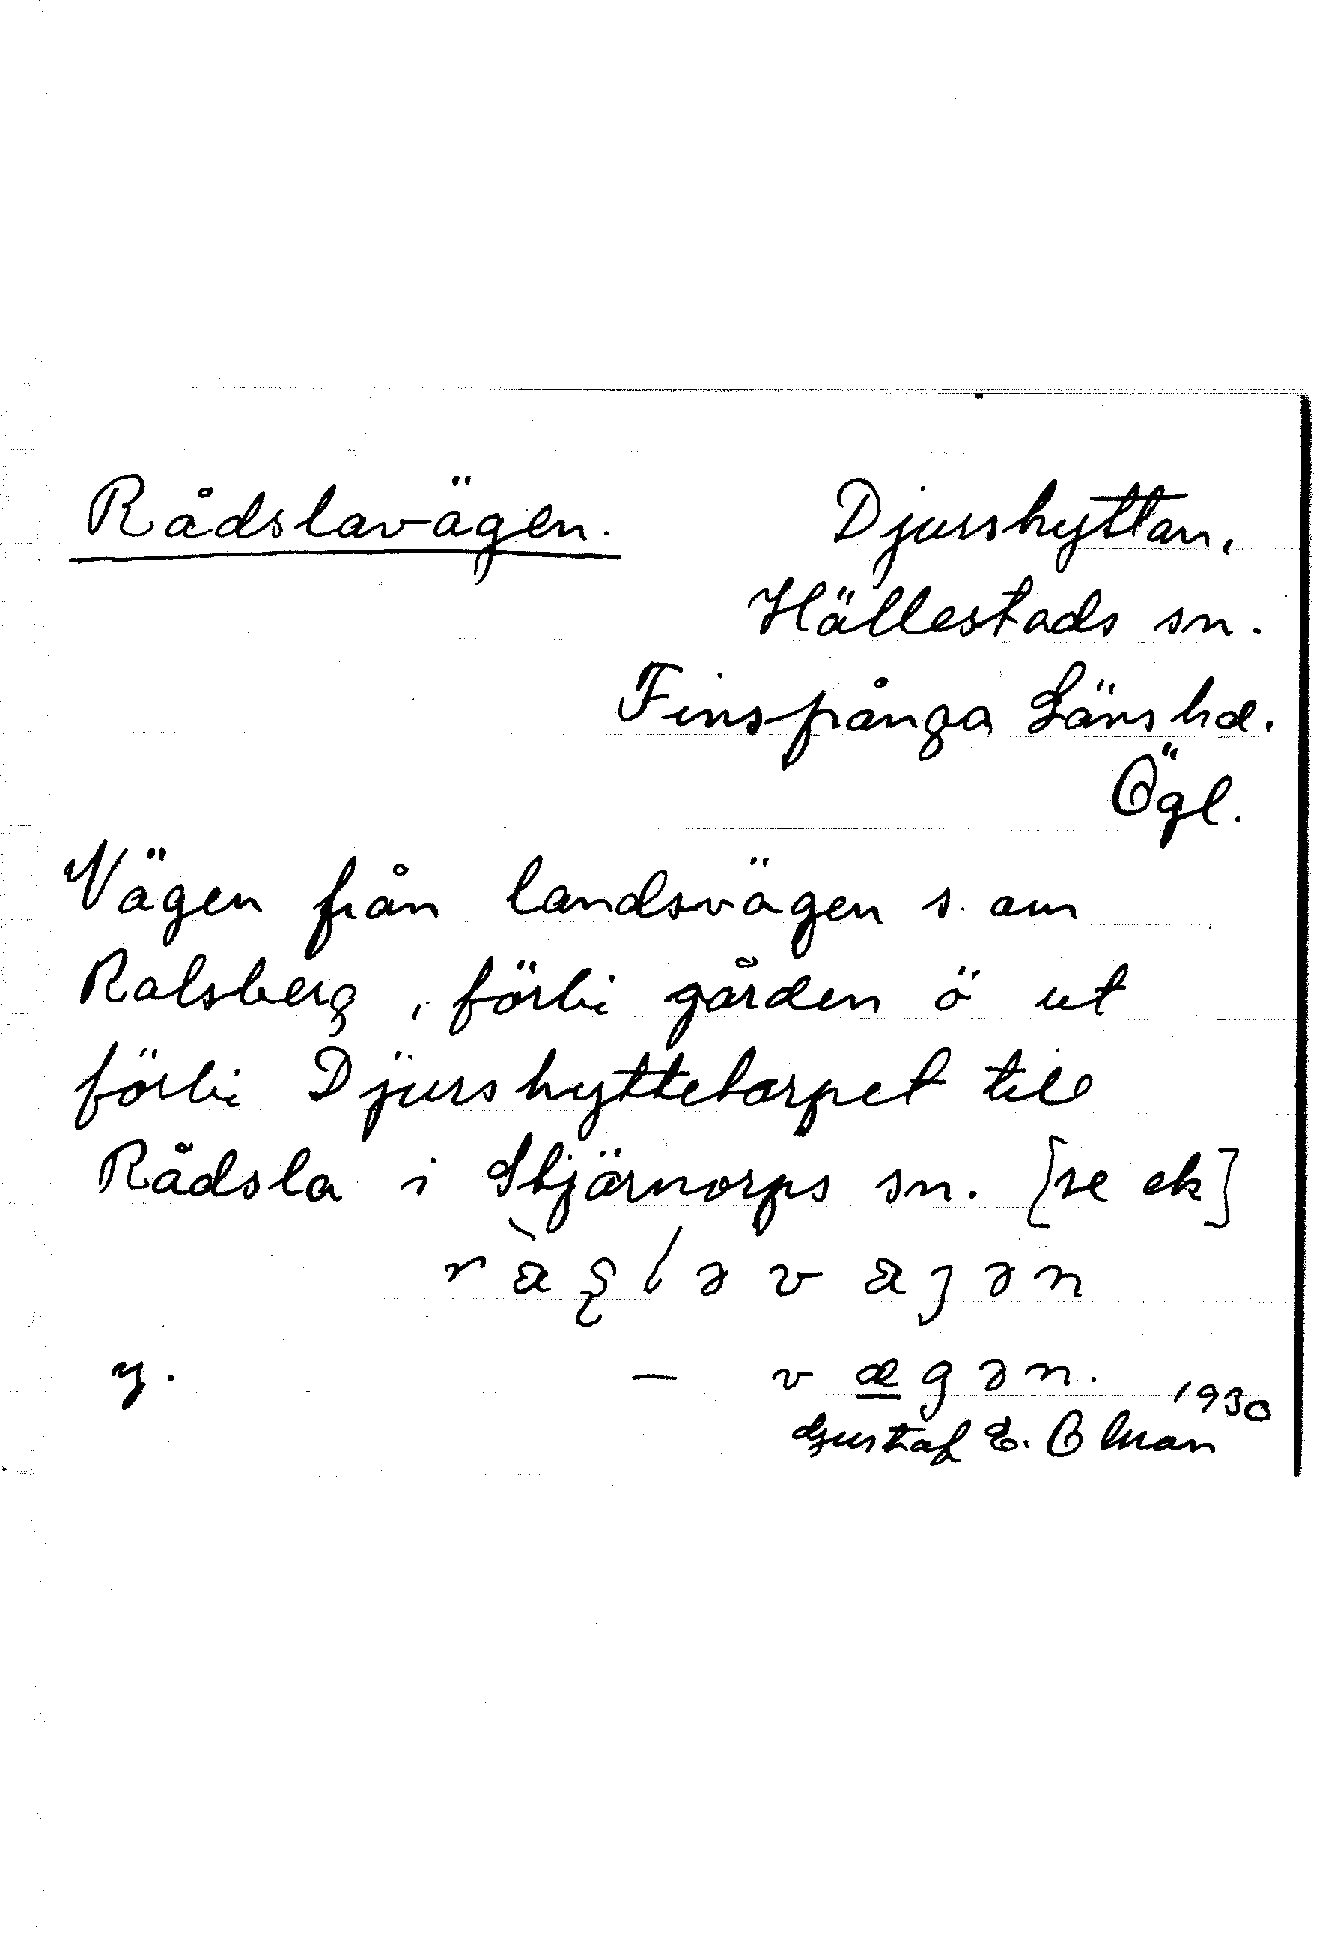 Rådslavägen. Djurshyttan,
Hällestads sn.
Finspånga Läns hd.
Ögl.
Vägen från landsvägen s. om
Ralsberg, förbi gården ö ut
förbi Djurshyttetorpet till
Rådsla i Stjärnorps sn. [se ek]
y. — vægən. 1930
Gustaf E. Olman